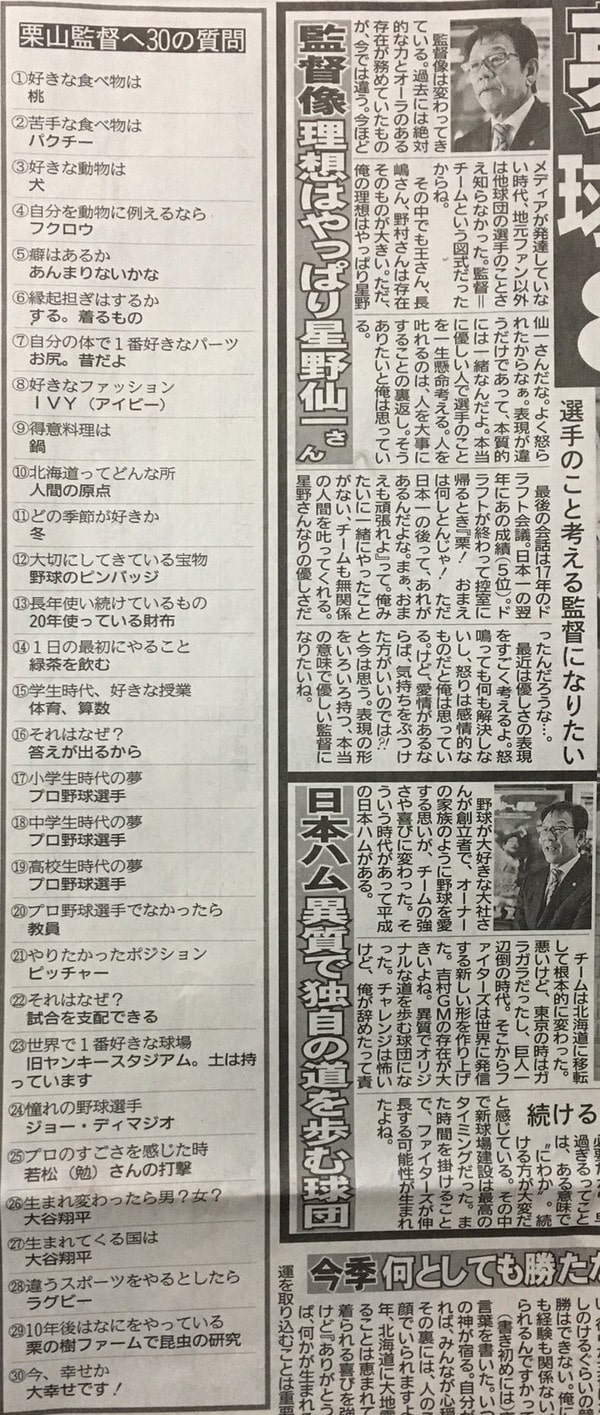 栗山監督へ30の質問
①好きな食べ物は
桃
②苦手な食べ物は
パクチー
③好きな動物は
犬
④自分を動物に例えるなら
フクロウ
⑤癖はあるか
あんまりないかな
⑥縁起担ぎはするか
する。着るもの
⑦自分の体で1番好きなパーツ
お尻。昔だよ
⑧好きなファッション
IVY（アイビー）
⑨得意料理は
鍋
⑩北海道ってどんな所
人間の原点
⑪どの季節が好きか
冬
⑫大切にしてきている宝物
野球のピンバッジ
⑬長年使い続けているもの
20年使っている財布
⑭1日の最初にやること
緑茶を飲む
⑮学生時代、好きな授業
体育、算数
⑯それはなぜ？
答えが出るから
⑰小学生時代の夢
プロ野球選手
⑱中学生時代の夢
プロ野球選手
⑲高校生時代の夢
プロ野球選手
⑳プロ野球選手でなかったら
教員
㉑やりたかったポジション
ピッチャー
㉒それはなぜ？
試合を支配できる
㉓世界で1番好きな球場
旧ヤンキースタジアム。土は持
っています
㉔憧れの野球選手
ジョー・ディマジオ
㉕プロのすごさを感じた時
若松（勉）さんの打撃
㉖生まれ変わったら男？女？
大谷翔平
㉗生まれてくる国は
大谷翔平
㉘違うスポーツをやるとしたら
ラグビー
㉙10年後はなにをやっている
栗の樹ファームで昆虫の研究
㉚今、幸せか
大幸せです！
選手のこと考える監督になりたい
監督像 理想はやっぱり星野仙一さん
監督像は変わってき
ている。過去には絶対
的な力とオーラのある
存在が務めていたもの
が、今では違う。今ほど
メディアが発達していな
い時代、地元ファン以外
は他球団の選手のことさ
え知らなかった。監督＝
チームという図式だった
からね。
その中でも王さん、長
嶋さん、野村さんは存在
そのものが大きい。ただ、
俺の理想はやっぱり星野
仙一さんだな。よく怒ら
れたからなぁ。表現が違
うだけであって、本質的
には一緒なんだよ。本当
に優しい人で選手のこと
を一生懸命考える。人を
叱れるのは、人を大事に
することの裏返し。そう
ありたいと俺は思ってい
る。
最後の会話は17年のド
ラフト会議。日本一の翌
年にあの成績（5位）。ド
ラフトが終わって控室に
帰るとき『栗！ おまえ
は何しとんじゃ！ ただ
日本一の後って、あれが
あるんだよな。まぁ、おま
えも頑張れよ』って。俺み
たいに一緒にやったこと
がない、チームも無関係
の人間を叱ってくれる。
星野さんなりの優しさだ
ったんだろうな…。
最近は優しさの表現
をすごく考えるよ。怒
鳴っても何も解決しな
いし、怒りは感情的な
ものだと俺は思ってい
る。けど、愛情があるな
らば、気持ちをぶつけ
た方がいいのでは!?
と今は思う。表現の形
をいろいろ持つ、本当
の意味で優しい監督に
なりたいね。
日本ハム 異質で独自の道を歩む球団
野球が大好きな大社さ
んが創立者で、オーナー
の家族のように野球を愛
する思いが、チームの強
さや喜びに変わった。そ
ういう時代があって平成
の日本ハムがある。
チームは北海道に移転
して根本的に変わった。
悪いけど、東京の時はガ
ラガラだったし、巨人一
辺倒の時代。そこからフ
ァイターズは世界に発信
する新しい形を作り上げ
た。吉村GMの存在が大
きいよね。異質でオリジ
ナルな道を歩む球団にな
った。チャレンジは怖い
けど、俺が辞めたって責
続ける
過ぎるってこと
は、ある意味で
“にわか”。続
ける方が大変だ
と感じている。その中
で新球場建設は最高の
タイミングだった。ま
た時間を掛けること
で、ファイターズが伸
長する可能性が生まれ
たよね。
今季 何としても勝た
しのけるぐらいの
勝はできない。俺に
も経験も関係ない。
られるんですかって
（書き初めには）
言葉を書いた。いつ
の神が宿る。自分が
れば、みんなが心
その裏には、人の
顔でいられますよ
年、北海道に大地震
ることは恵まれて
着られる喜びを
けど『ありがとう
ば、何かが生まれ
運を取り込むことは重要